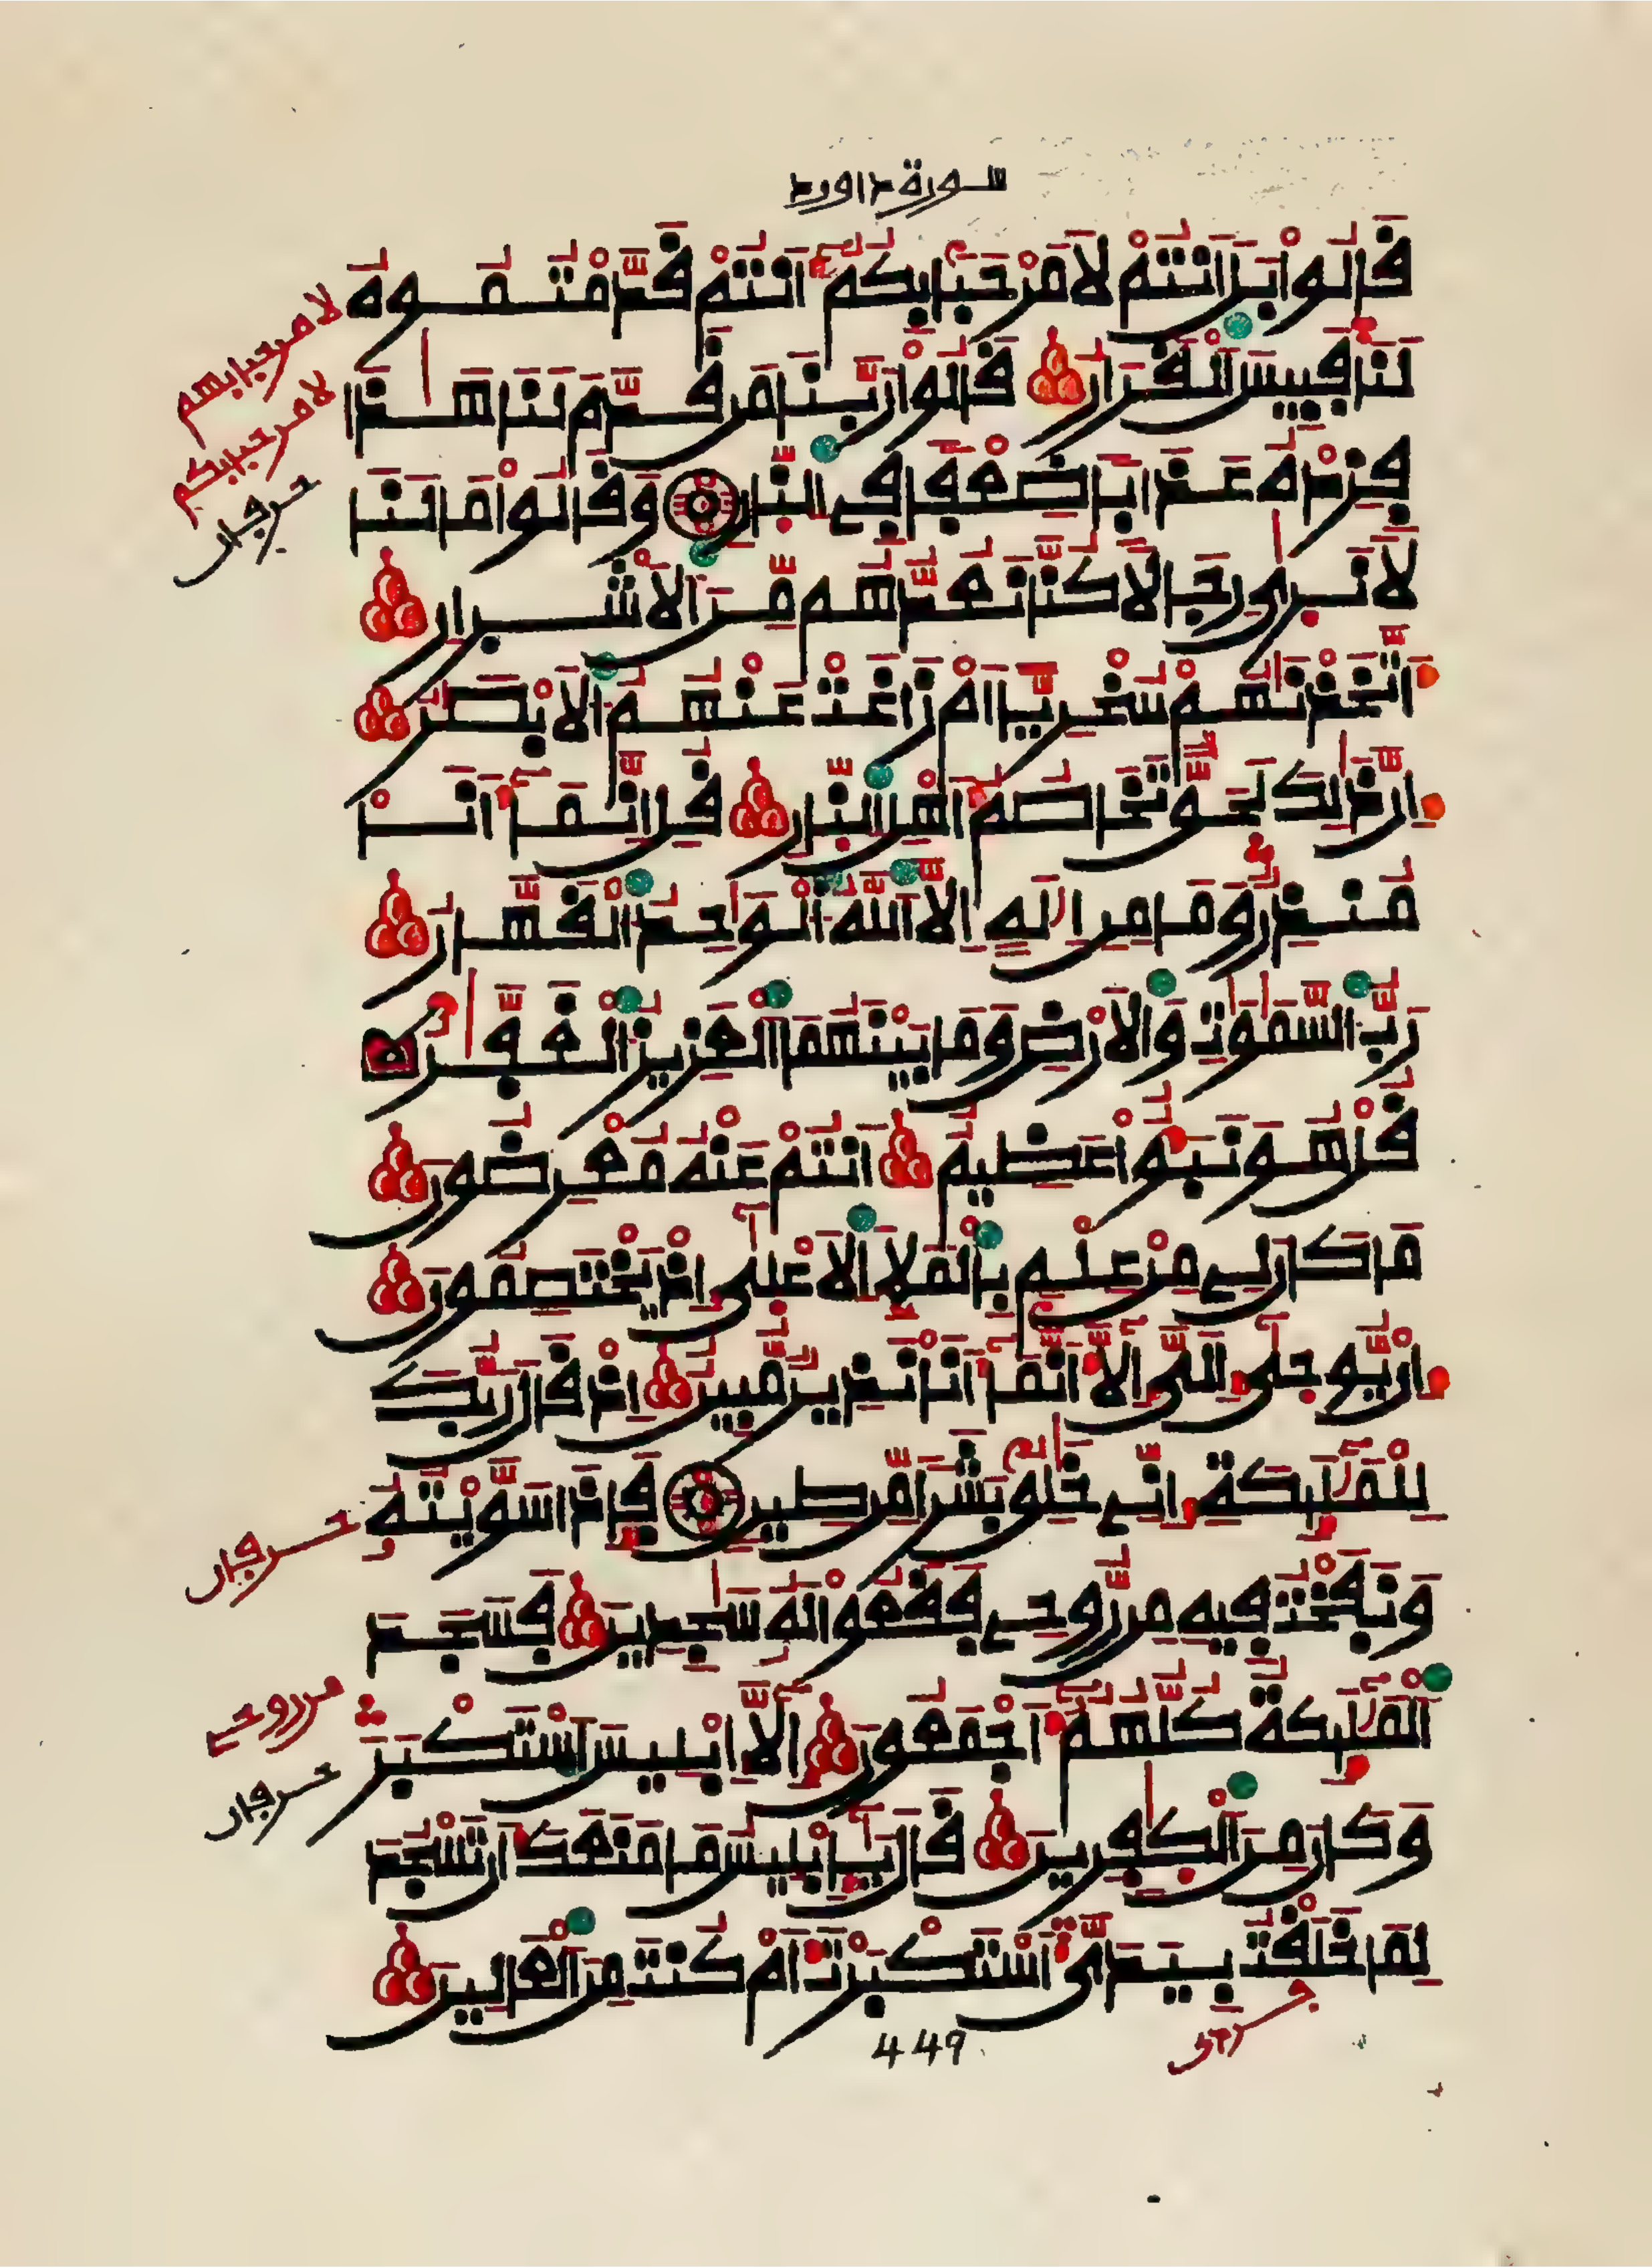 سورة داوود
قَالُوا بَلَ اَنتُمْ لَا مَرْحَباً بِكُمُ أَنتُمْ قَدَّمْتُمُوهُ
لَنَا فَبِيسَ اَلْقَرَارُ قَالُواْ رَبَّنَا مَن قَدَّمَ لَنَا هَٰذَا
فَزِدْهُ عَذَاباً ضِعْفاً فِي النّارِ وَقَالُواْ مَا لَنَا
لَا نَرَىٰ رِجَالاً كُنَّا نَعُدُّهُم مِّنَ اَلَاشْرَارِ
أَتَّخَذْنَٰهُمْ سُخْرِيّاً اَمْ زَاغَتْ عَنْهُمُ اَلَابْصَٰرُ
إِنَّ ذَٰلِكَ لَحَقٌّ تَخَاصُمُ أَهْلِ اِلنّارِ قُلِ اِنَّمَا أَنَا
مُنذِرٌ وَمَا مِنِ اِلَٰهٍ اِلَّا اَللَّهُ اَلْوَٰحِدُ اَلْقَهَّارُ
رَبُّ اَلسَّمَٰوَٰتِ وَالَارْضِ وَمَا بَيْنَهُمَا اَلْعَزِيزُ اَلْغَفَّٰرُ
قُلْ هُوَ نَبَؤٌاْ عَظِيمٌ اَنتُمْ عَنْهُ مُعْرِضُونَ
مَا كَانَ لِي مِنْ عِلْمٍ بِالْمَلَإِ اِلَاعْلَىٰ إِذْ يَخْتَصِمُونَ
إِنْ يُّوحَىٰ إِلَىَّ إِلَّا أَنَّمَا أَنَا نَذِيرٌ مُّبِينٌ اِذْ قَالَ رَبُّكَ
لِلْمَلَٰئِكَةِ إِنِّي خَٰلِقٌ بَشَراً مِّن طِينٍ فَإِذَا سَوَّيْتُهُ
وَنَفَخْتُ فِيهِ مِن رُّوحِي فَقَعُواْ لَهُ سَٰجِدِينَ فَسَجَدَ
اَلْمَلَٰئِكَةُ كُلُّهُمُ أَجْمَعُونَ إِلَّا إِبْلِيسَ اَسْتَكْبَرَ
وَكَانَ مِنَ اَلْكَٰفِرِينَ قَالَ يَٰإِبْلِيسُ مَا مَنَعَكَ أَن تَسْجُدَ
لِمَا خَلَقْتُ بِيَدَىَّ أَسْتَكْبَرْتَ أَمْ كُنتَ مِنَ اَلْعَالِينَ
لا مرحبا بهم
لا مرحبا بكم
حرفان
حرفان
من روحي
حرفان
449